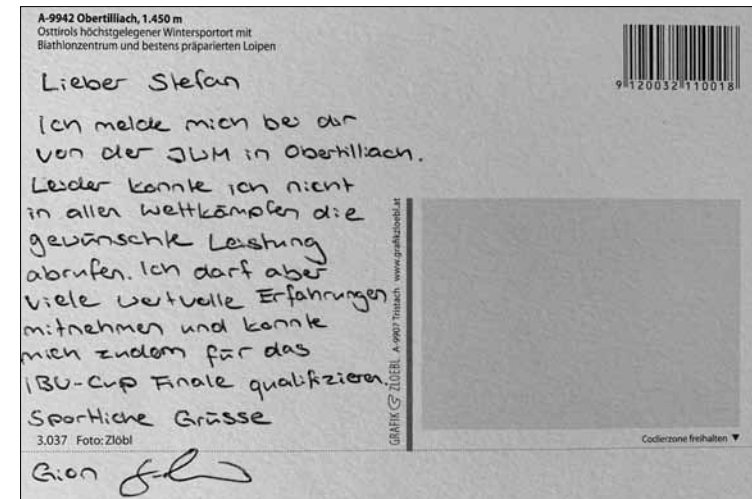 A-9942 Obertilliach, 1.450 m
Osttirols höchstgelegener Wintersportort mit
Biathlonzentrum und bestens präparierten Loipen
9 120032 110018
Lieber Stefan
Ich melde mich bei dir
von der JWM in Obertilliach.
Leider konnte ich nicht
in allen Wettkämpfen die
gewünschte Leistung
abrufen. Ich darf aber
viele wertvolle Erfahrungen
mitnehmen und konnte
mich zudem für das
IBU-Cup Finale qualifizieren.
Sportliche Grüsse
3.037 Foto: Zlöbl
Gion
GRAFIK ZLOEBL A-9907 Tristach www.grafikzloebl.at
Codierzone freihalten ▼